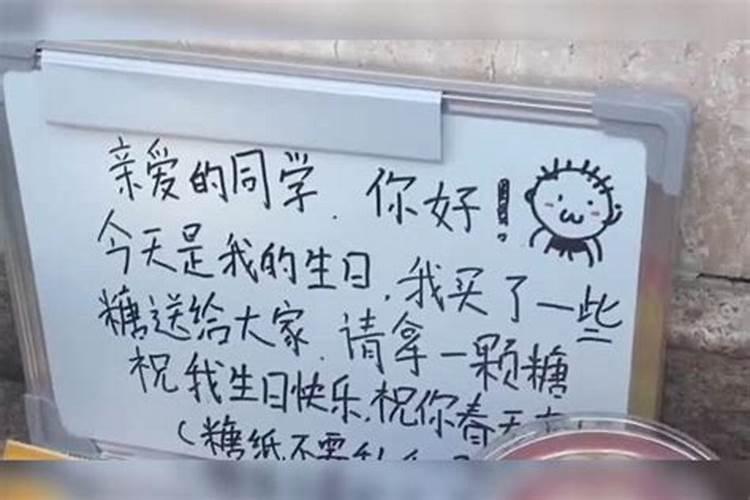 亲爱的同学,你好!
今天是我的生日,我买了一些
糖送给大家,请拿一颗糖
祝我生日快乐,祝你春天
(糖纸不要乱